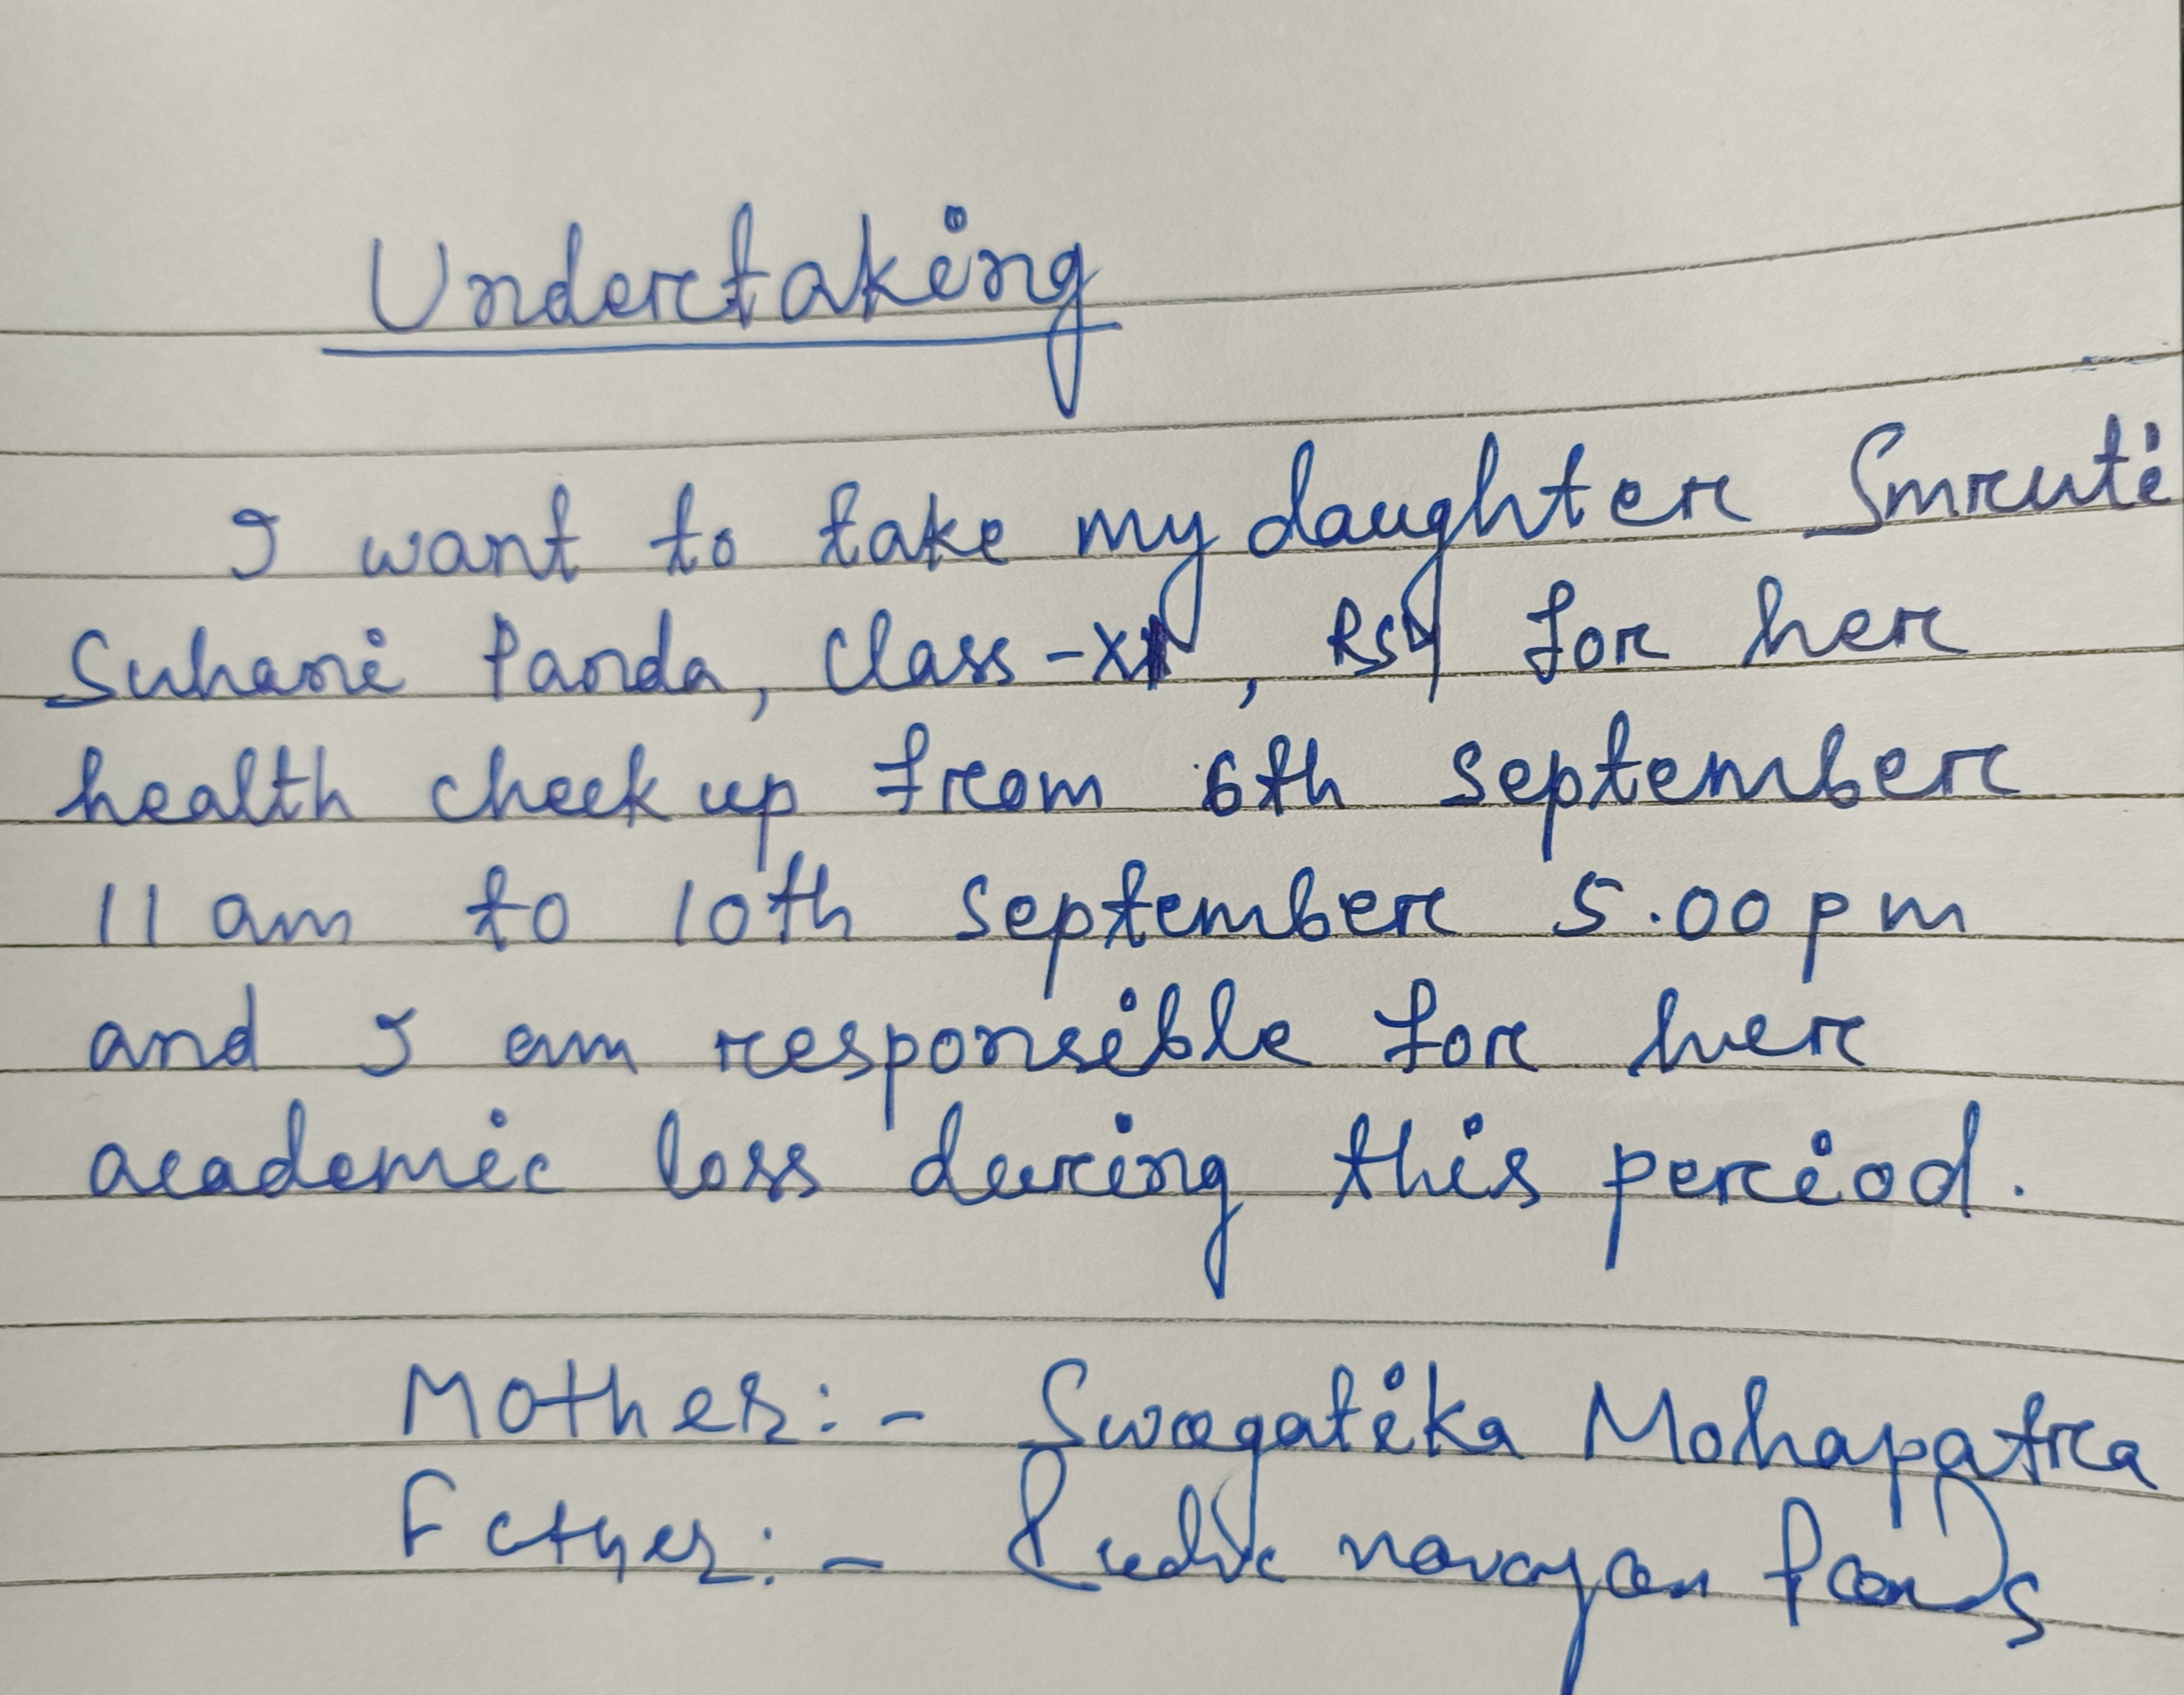 Undertaking
I want to take my daughter Smruti
Suhani Panda, Class - XI, RS4 for her
health check up from 6th September
11 am to 10th September 5.00 pm
and I am responsible for her
academic loss during this period.
Mother :- Swagatika Mohapatra
Father :- narayan Panda